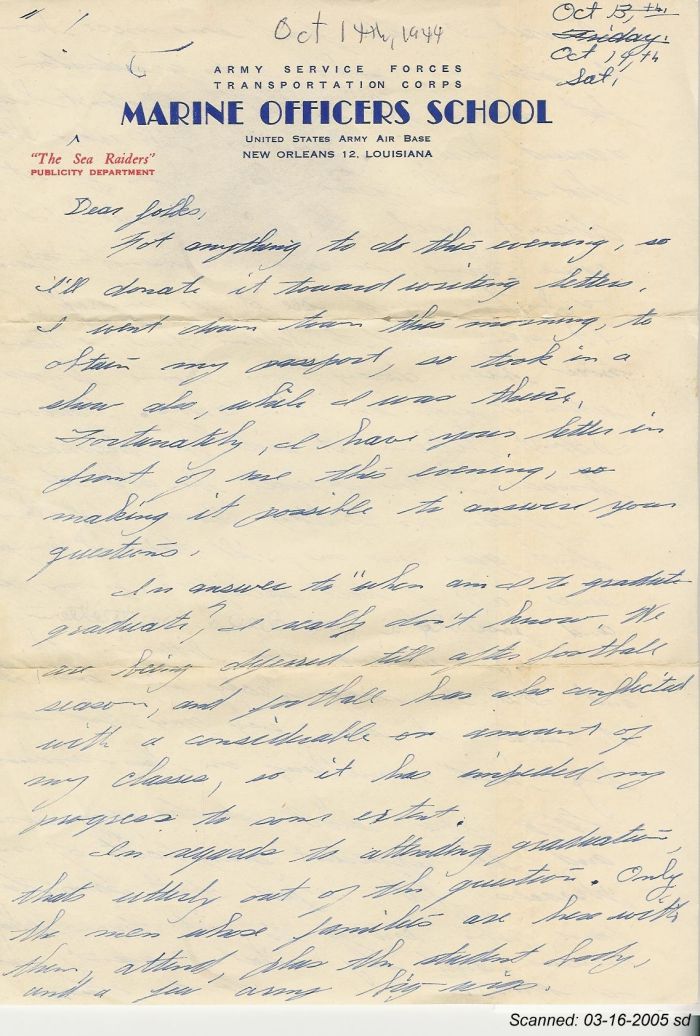 Oct 14th, 1944
Oct 13, th.
Friday.
Oct 14th
Sat,
ARMY SERVICE FORCES
TRANSPORTATION CORPS
MARINE OFFICERS SCHOOL
UNITED STATES ARMY AIR BASE
NEW ORLEANS 12, LOUISIANA
"The Sea Raiders"
PUBLICITY DEPARTMENT
Dear folks,
Not anything to do this evening, so
I'll donate it toward writing letters.
I went down town this morning, to
obtain my passport, so took in a
show also, while I was there.
Fortunately, I have your letter in
front of me this evening, so
making it possible to answer your
questions.
In answer to "when am I to graduate
graduate," I really don't know. We
are being deferred till after football
season, and football has also conflicted
with a considerable amount of
my classes, so it has impeded my
progress to some extent.
In regards to attending graduation,
thats utterly out of the question. Only
the men whose families are here with
them, attend, plus the student body,
and a few army big-wigs.
Scanned: 03-16-2005 sd